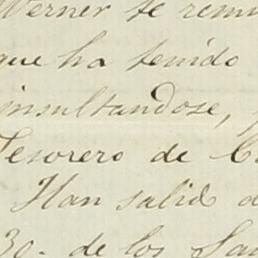 Werner te remi
que ha tenido
insultandose,
Tesorero de C
Han salid d
30. de los San